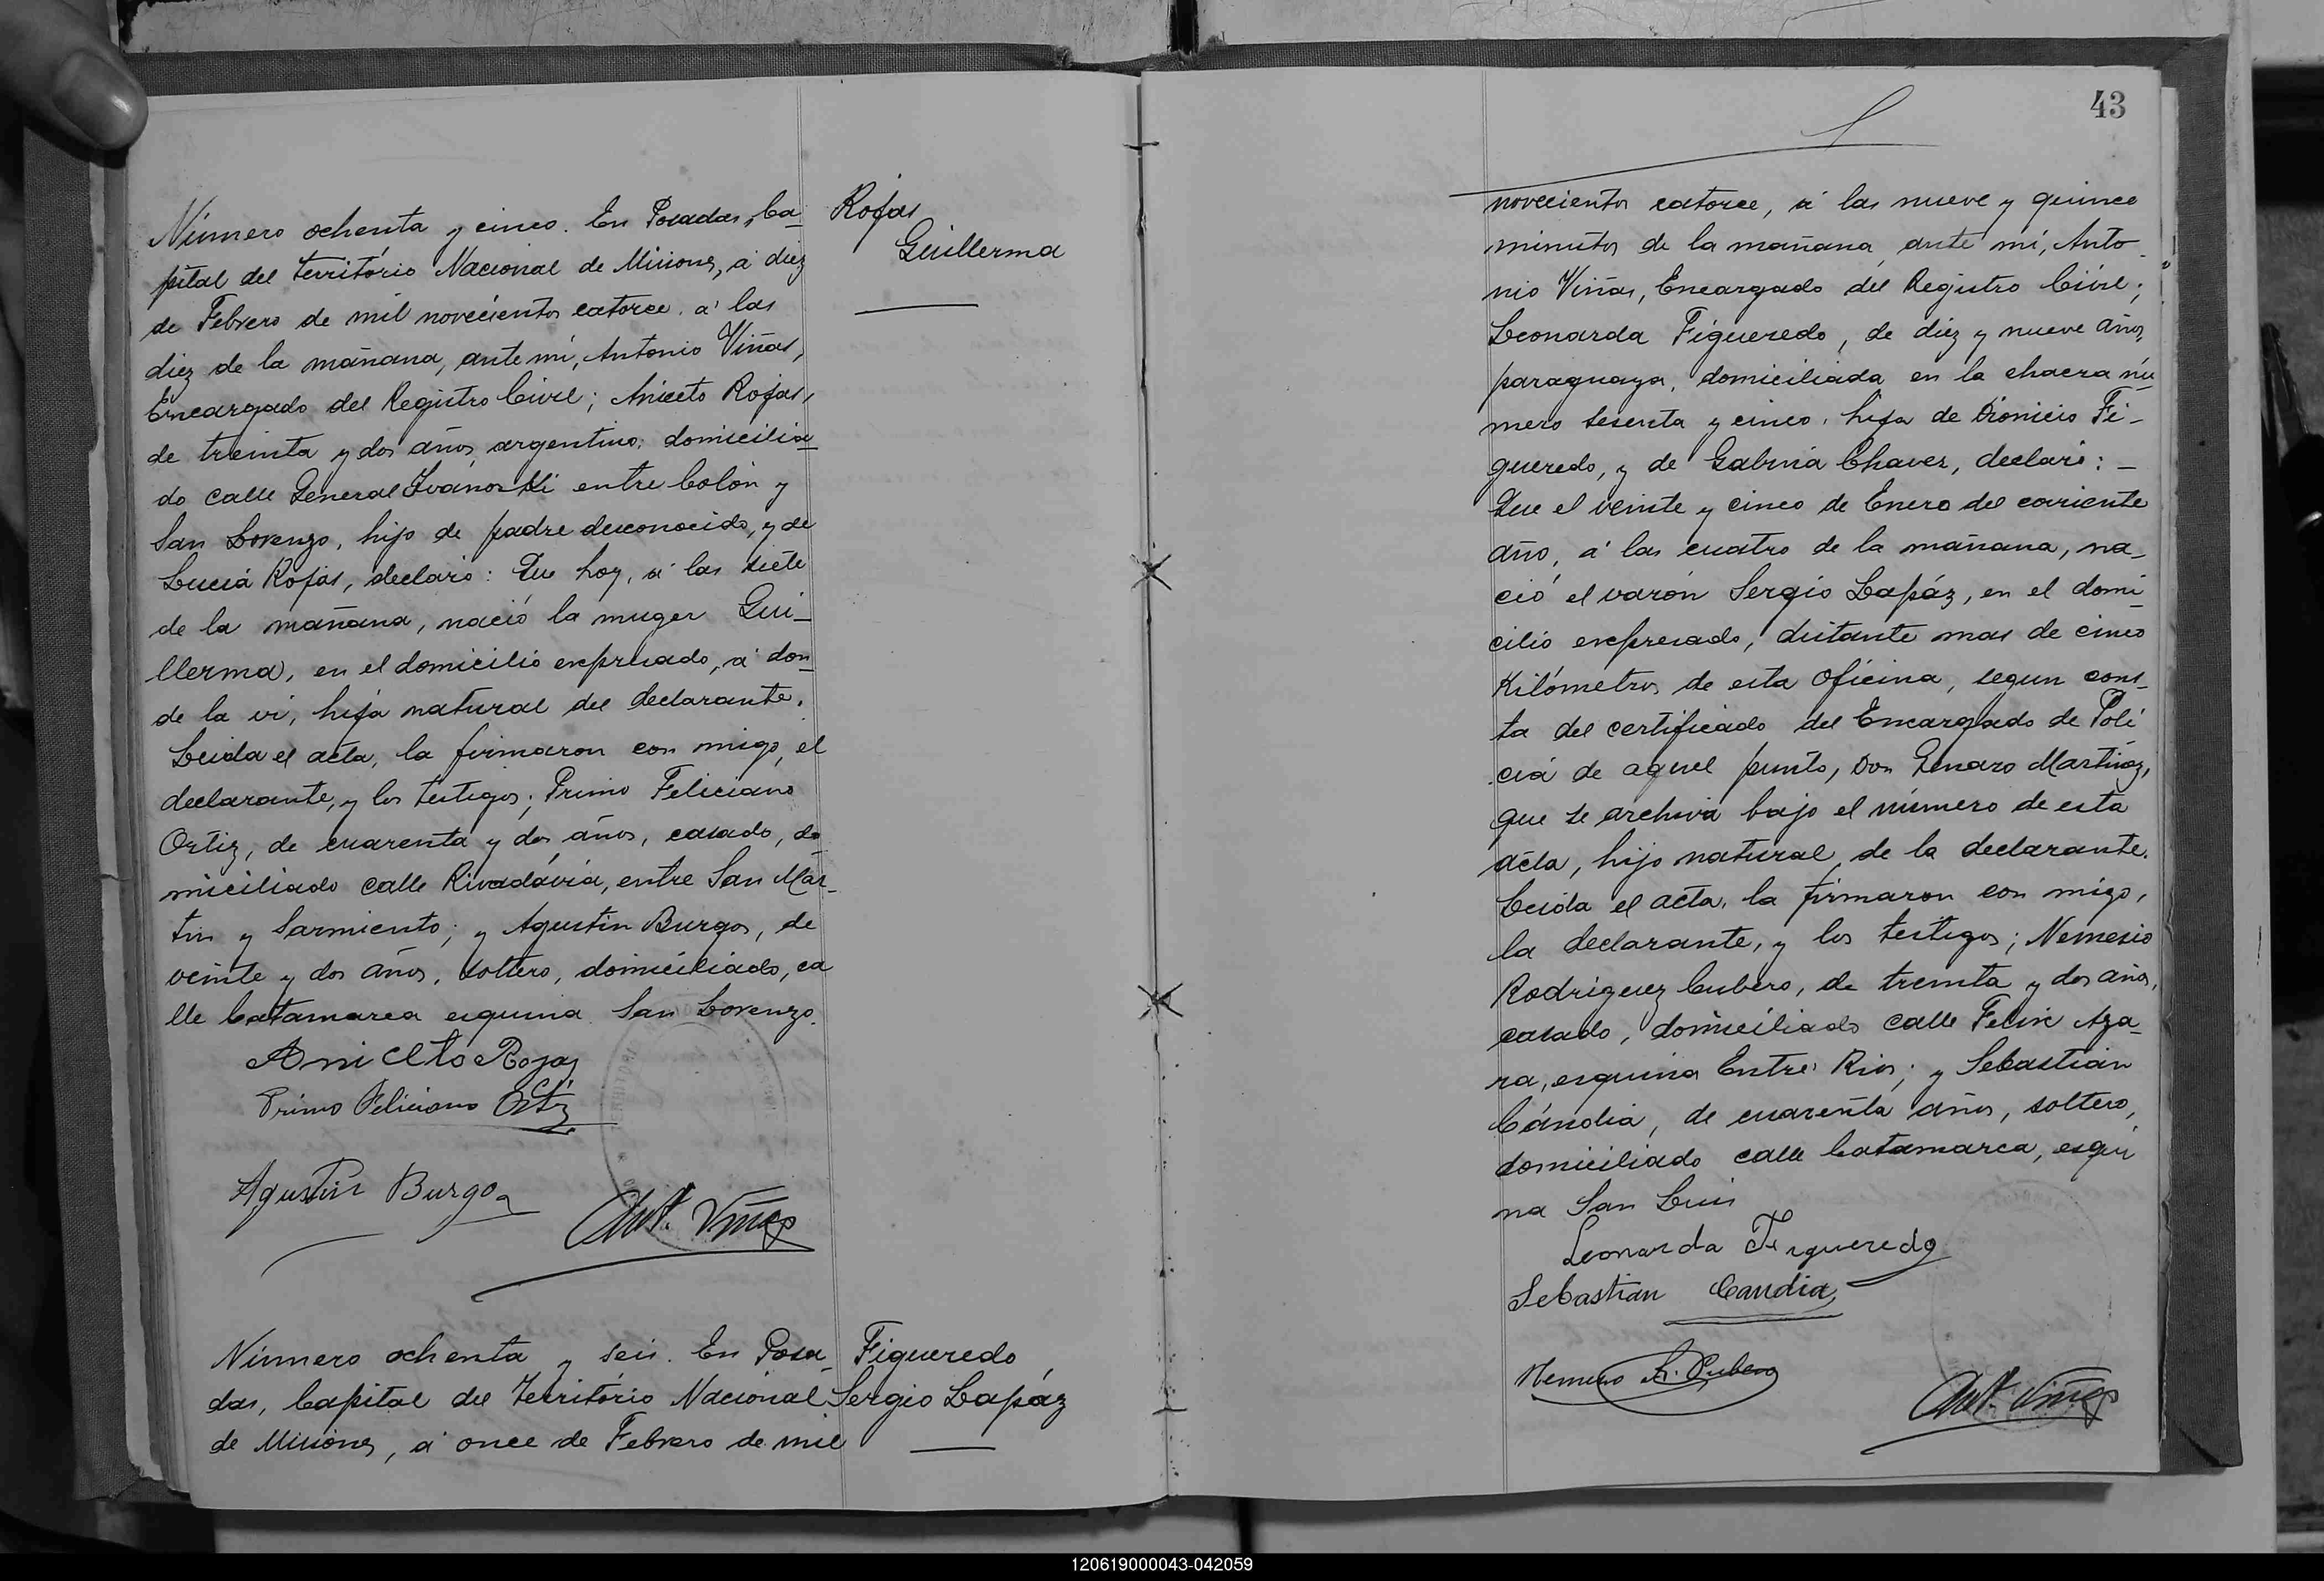 Número ochenta y cinco. En Posadas, Ca-
pital del Território Nacional de Misiones, á diez
de Febrero de mil novecientos catorce, á las
diez de la mañana, ante mí, Antonio Viñas,
Encargado del Registro Civil; Aniceto Rojas,
de treinta y dos años, argentino, domicilia-
do calle General Ivanoski entre Colón y
San Lorenzo, hijo de padre desconocido, y de
Lucía Rojas, declaró: Que hoy, á las siete
de la mañana, nació la muger Gui-
llerma, en el domicilio expresado, á don-
de la vi, hija natural del declarante.
Leida el acta, la firmaron con migo, el
declarante, y los testigos; Primo Feliciano
Ortiz, de cuarenta y dos años, casado, do-
miciliado calle Rivadávia, entre San Mar-
tin y Sarmiento; y Agustin Burgos, de
veinte y dos años, soltero, domiciliado, ca
lle Catamarca esquina San Lorenzo.
Aniceto Rojas
Primo Feliciano Ortiz
Agustin Burgos
Ant. Viñas
Rojas
Guillerma
Número ochenta y seis. En Posa-
das, Capital del Território Nacional
de Misiones, á once de Febrero de mil
Figueredo
Sergio Lapáz
43
novecientos catorce, á las nueve y quince
minutos de la mañana, ante mí, Anto-
nio Viñas, Encargado del Registro Civil;
Leonarda Figueredo, de diez y nueve años,
paraguaya, domiciliada en la chacra nú-
mero sesenta y cinco, hija de Dionicio Fi-
gueredo, y de Gabina Chavez, declaró: -
Que el veinte y cinco de Enero del corriente
año, á las cuatro de la mañana, na-
ció el varón Sergio Lapáz, en el domi-
cilio expresado, distante mas de cinco
Kilómetros de esta Oficina, segun cons-
ta del certificado del Encargado de Poli
cia de aquel punto, Don Genaro Martinez,
que se archiva bajo el número de esta
acta, hijo natural de la declarante.
Leida el acta, la firmaron con migo,
la declarante, y los testigos; Nemesio
Rodriguez Cubero, de treinta y dos años,
casado, domiciliado calle Felix Aza-
ra, esquina Entre Rios; y Sebastián
Cándia, de cuarenta años, soltero,
domiciliado calle Catamarca, esqui
na San Luis
Leonarda Figueredo
Sebastian Candia
Nemesio R. Cubero
Ant. Viñas
120619000043-042059